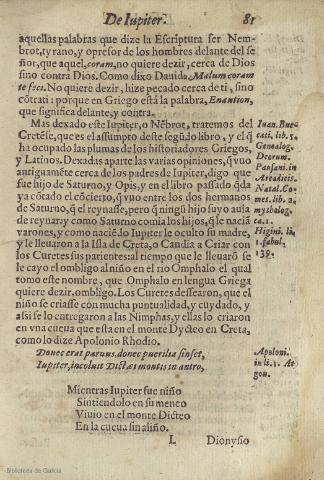 De Iupiter. 81
aquellas palabras que dize la Escriptura ser Nem-
brot, tyrano, y opresor de los hombres delante del se
ñor, que aquel, coram, no quiere dezir, cerca de Dios
sino contra Dios. Como dixo Dauid. Malum coram
te feci. No quiere dezir, hize pecado cerca de ti, sino
cõtrati: porque en Griego está la palabra, Enantion,
que significa delante, y contra.
Mas dexado este Iupiter, o Nẽbrot, tratemos del
Cretẽse, que es el assumpto deste segũdo libro, y el q̃
ha ocupado las plumas de los historiadores Griegos,
y Latinos. Dexadas aparte las varias opiniones, q̃ vuo
antiguamẽte cerca de los padres de Iupiter, digo que
fue hijo de Saturno, y Opis, y en el libro passado q̃da
ya cõtado el cõcierto, q̃ vuo entre los dos hermanos
de Saturno, q̃ el reynasse, pero q̃ ningũ hijo suyo auia
de reynar: y como Saturno comia los hijos, q̃ le naciã
varones, y como naciẽdo Iupiter le oculto su madre,
y le lleuaron a la Isla de Creta, o Candia a Criar con
los Curetes sus parientes: al tiempo que le lleuarõ se
le cayo el ombligo al niño en el rio Omphalo el qual
tomo este nombre, que Omphalo en lengua Griega
quiere dezir, ombligo. Los Curetes dessearon, que el
niño se criasse con mucha puntualidad, y cuydado, y
assi se lo entregaron a las Nimphas, y ellas lo criaron
en vna cueua que esta en el monte Dycteo en Creta,
como lo dize Apolonio Rhodio.
Donec erat paruus, donec puerilia sinset,
Iupiter, incoluit Dictæi montis in antro,
Mientras Iupiter fue niño
Sintiendolo en su meneo
Viuio en el monte Dicteo
En la cueua sin aliño.
L Dionysio
Iuan. Buc-
cati, lib. 5.
Genealog.
Deorum.
Pausani. in
Arcadicis.
Natal. Co-
mes. lib. 2.
mytholog.
ca. 1.
Higini. li.
1. fabul.
139.
Apoloni.
in li. 1. Ar
gon.
Biblioteca de Galicia